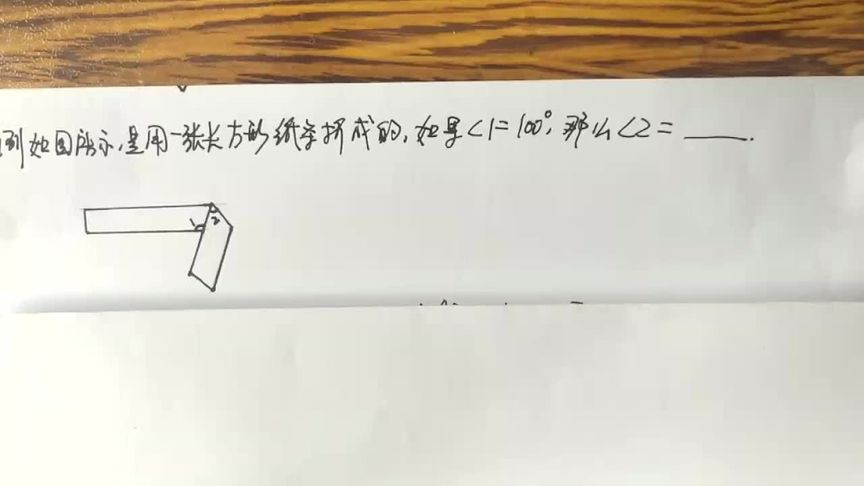 例如图所示,是用一张长方形纸条折成的,如果∠1=100°,那么∠2=____.
1
2